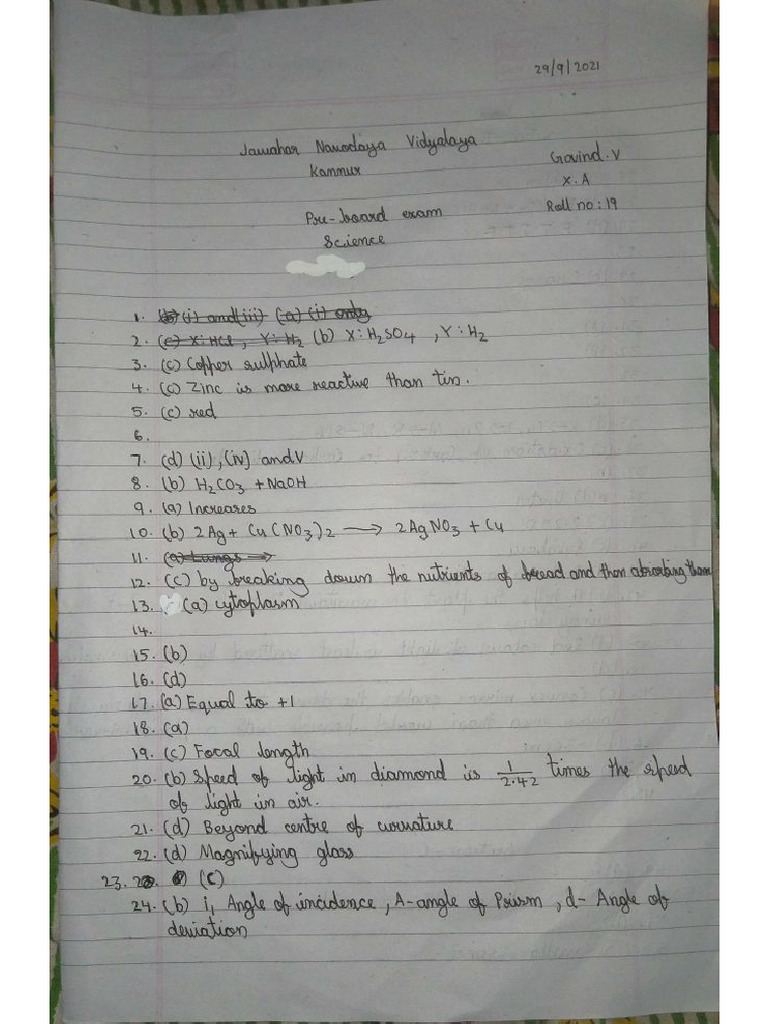 29/9/2021
Jawahar Navodaya Vidyalaya
Kannur
Govind.V
X.A
Roll no: 19
Pre-board exam
Science
1. (b) (i) and (iii) (a) (i) only
2. (c) X: HCl, Y: H2 (b) X: H2SO4, Y: H2
3. (c) Copper sulphate
4. (c) Zinc is more reactive than tin.
5. (c) red
6.
7. (d) (ii), (iv) and V
8. (b) H2CO3 + NaOH
9. (a) Increares
10. (b) 2Ag + Cu(NO3)2 → 2AgNO3 + Cu
11. (a) Lungs →
12. (c) by breaking down the nutrients of bread and then absorbing them
13. (a) cytoplasm
14.
15. (b)
16. (d)
17. (a) Equal to +1
18. (a)
19. (c) Focal length
20. (b) Speed of light in diamond is 1/2.42 times the speed
of light in air.
21. (d) Beyond centre of curvature
22. (d) Magnifying glass
23. (c)
24. (b) i, Angle of incidence, A-angle of Prism, d- Angle of
deviation